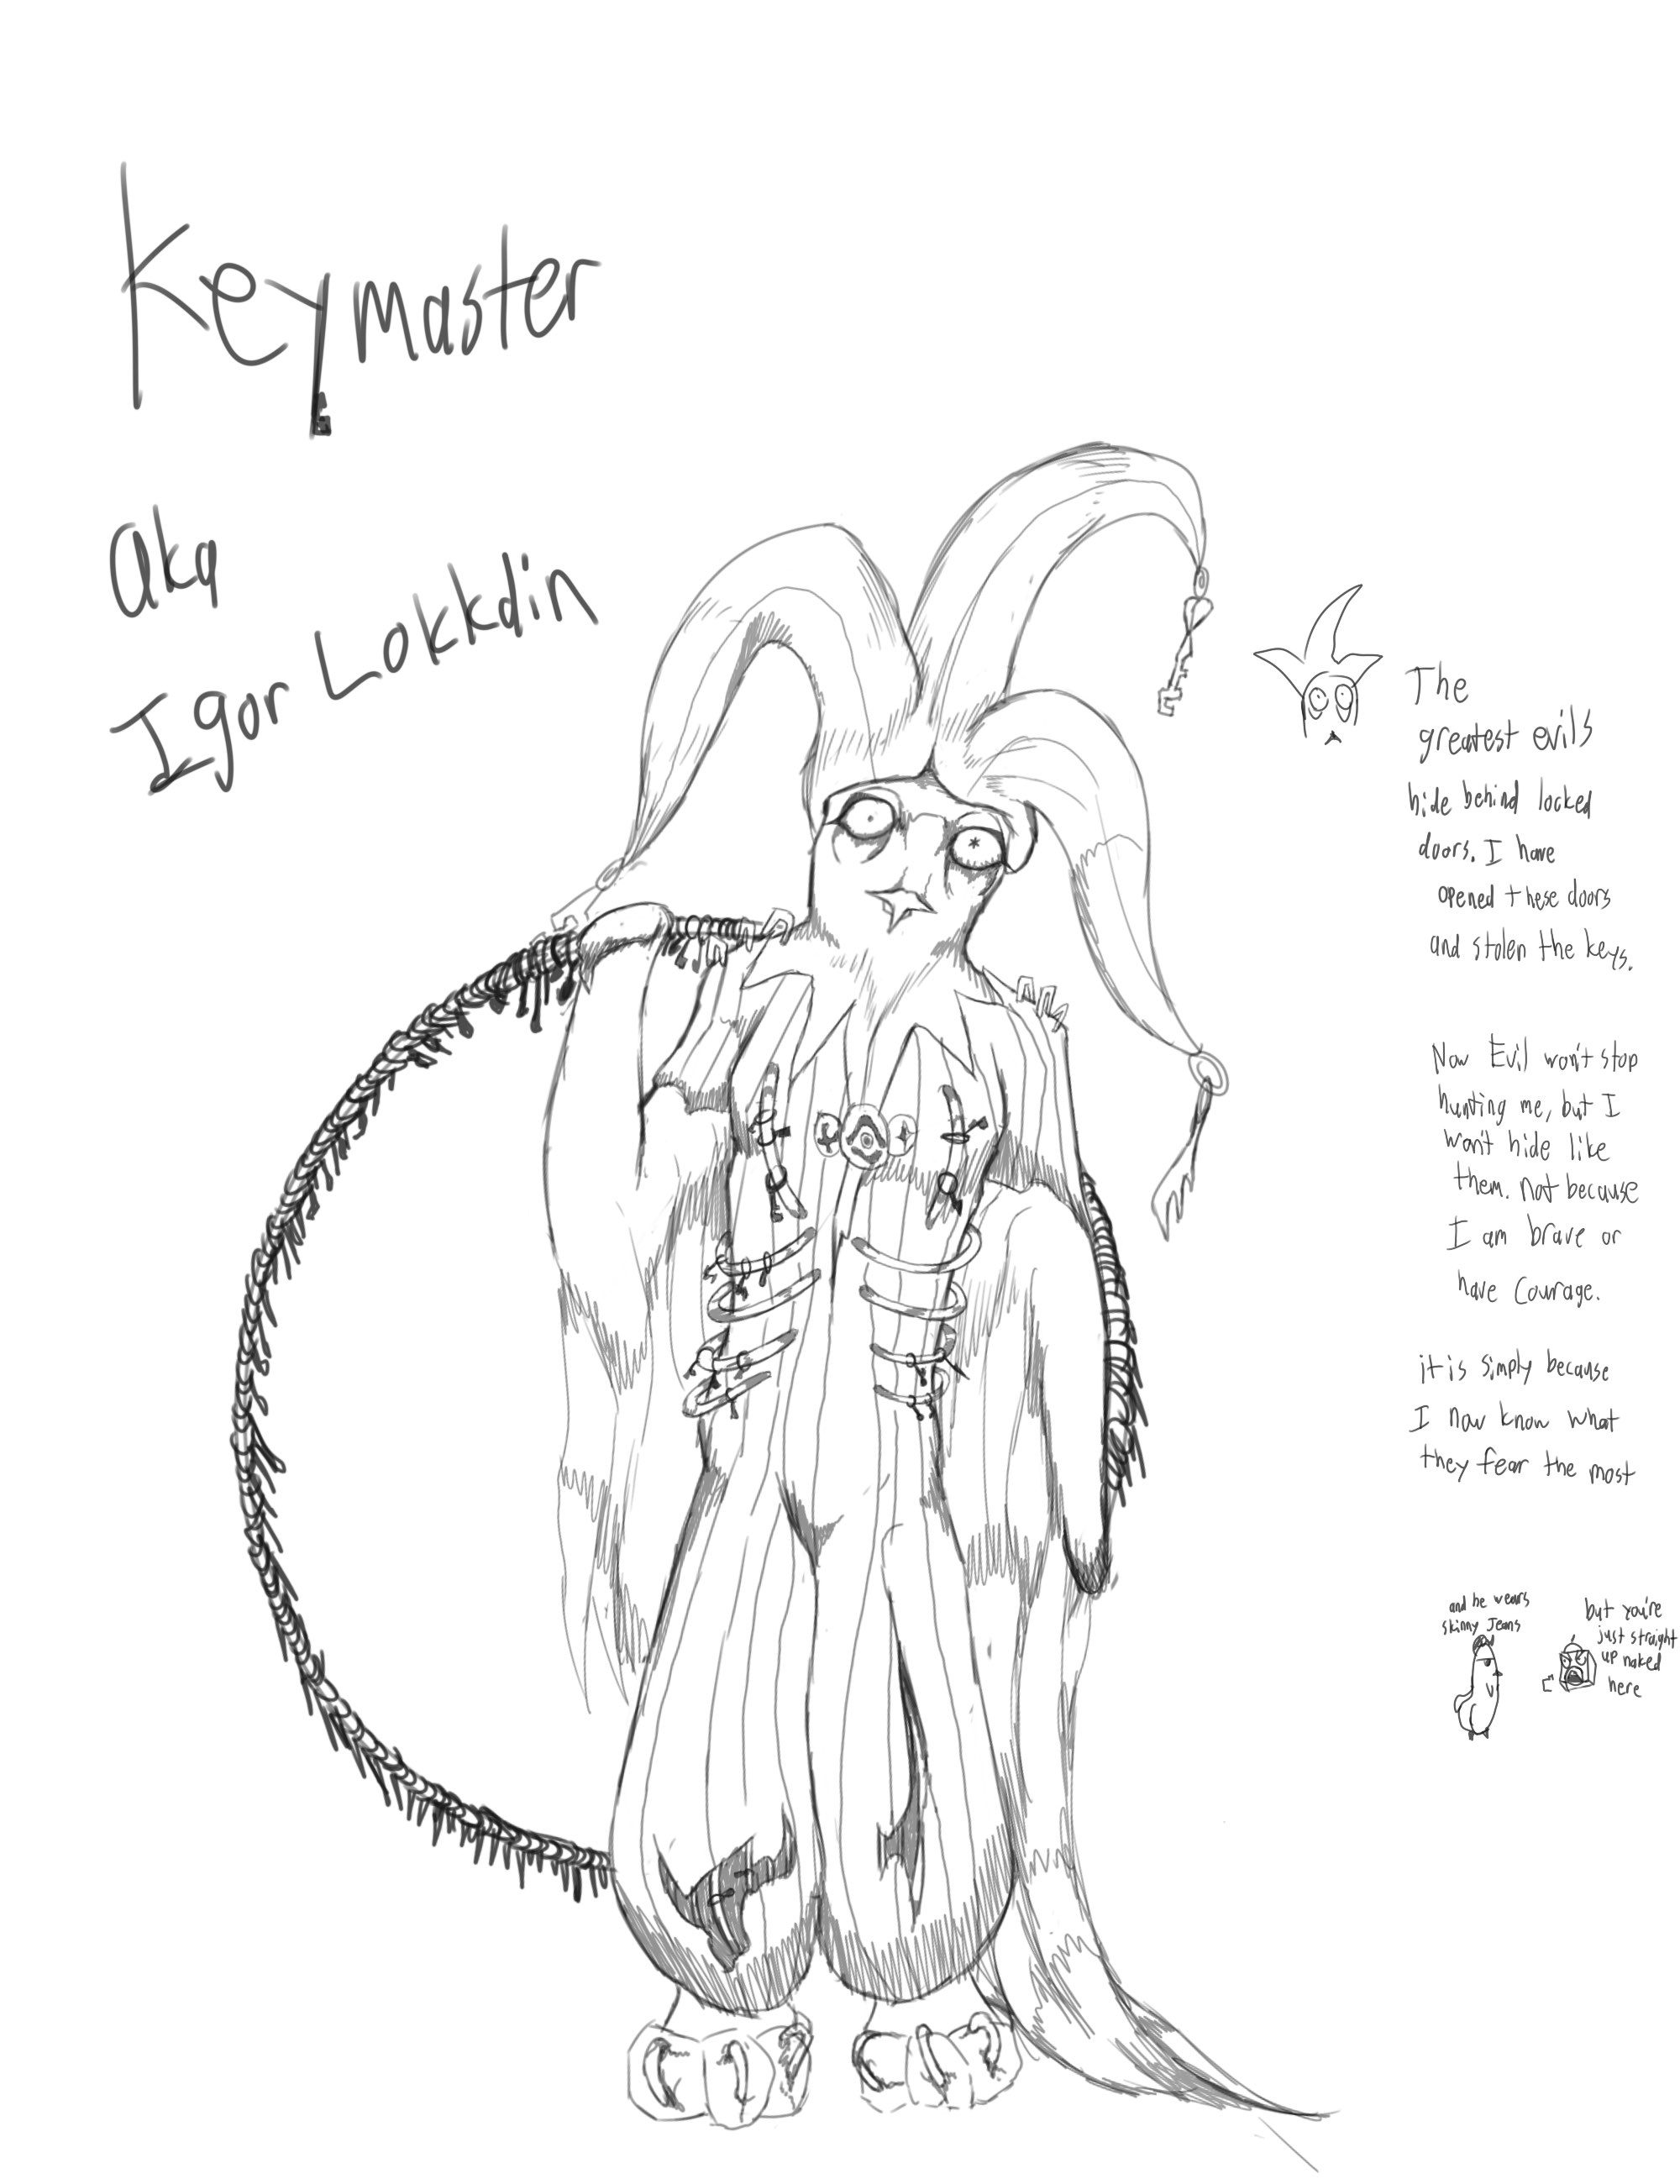 Keymaster
aka
Igor Lokkdin
The
greatest evils
hide behind locked
doors. I have
opened these doors
and stolen the keys.
Now Evil won't stop
hunting me, but I
won't hide like
them. not because
I am brave or
have courage.
it is simply because
I now know what
they fear the most
and he wears
skinny Jeans
but you're
just straight
up naked
here